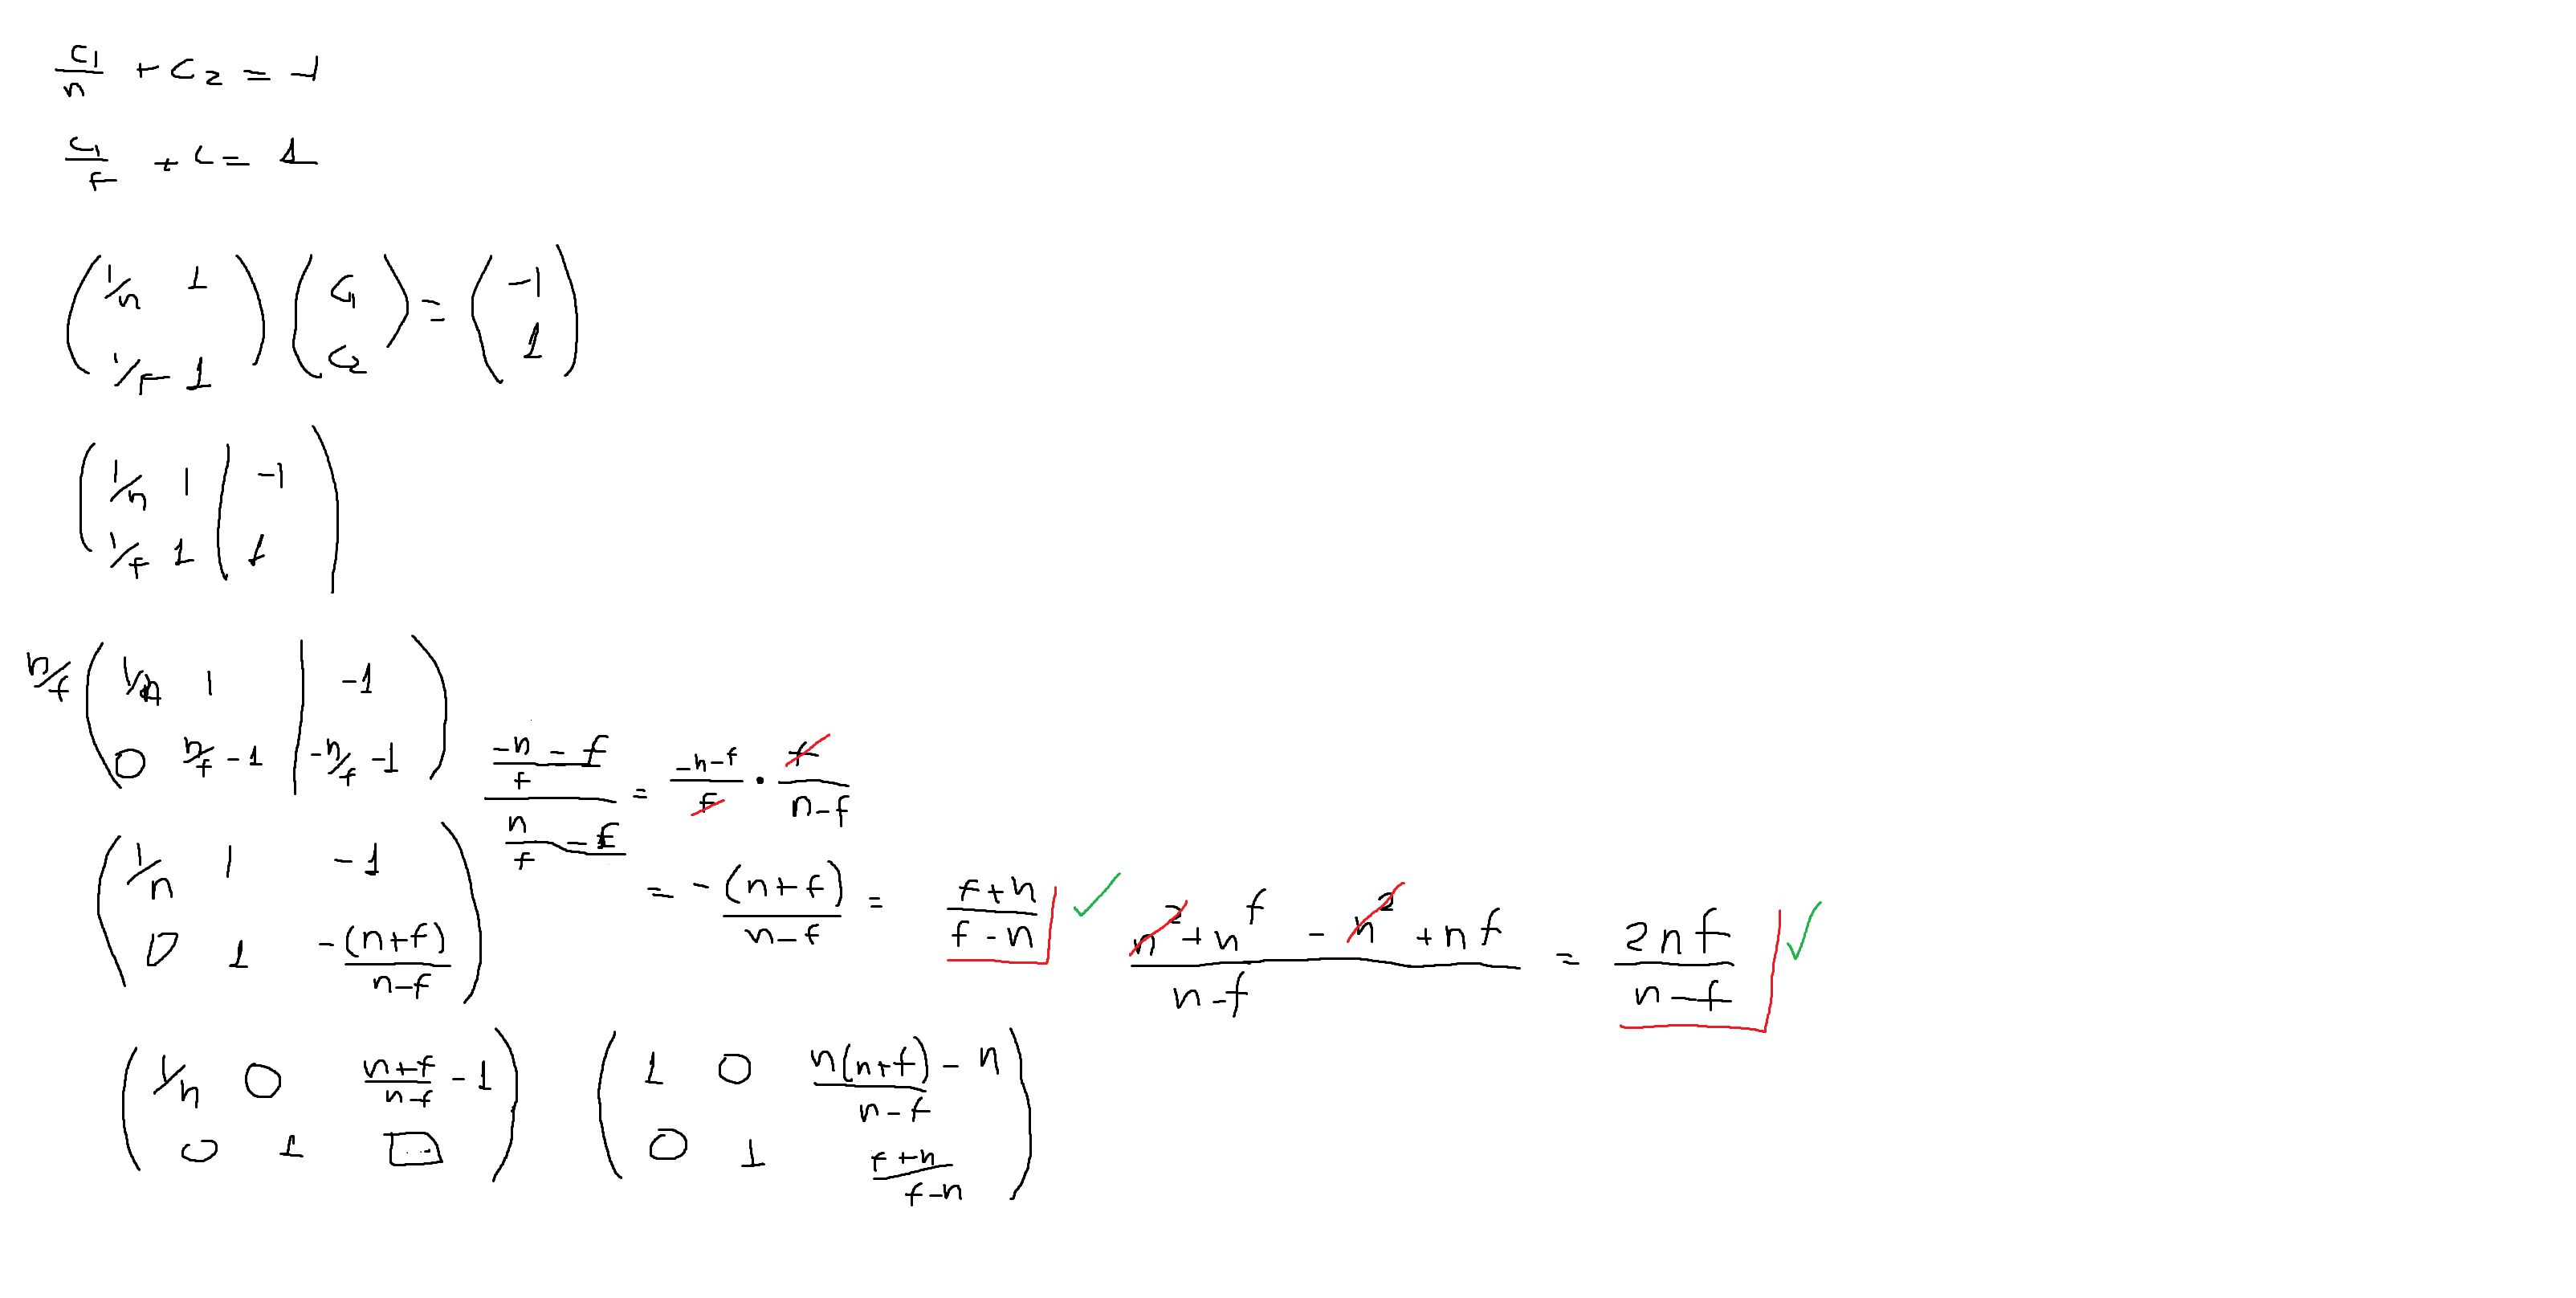 c1/n + c2 = -1
c1/f + c = 1
(1/n 1) (c1) = (-1)
(1/f 1) (c2) (1)
(1/n 1 | -1)
(1/f 1 | 1)
n/f (1/n 1 | -1)
(0 n/f - 1 | -n/f - 1)
((-n - f)/f) / ((n - f)/f) = (-n-f)/f · f/(n-f)
= -(n+f)/(n-f) = (f+n)/(f-n) ✓
(1/n 1 -1)
(0 1 -(n+f)/(n-f))
(n²+nf - n² + nf)/(n-f) = 2nf/(n-f) ✓
(1/n 0 (n+f)/(n-f) - 1)
(0 1 ...)
(1 0 n(n+f)/(n-f) - n)
(0 1 (f+n)/(f-n))